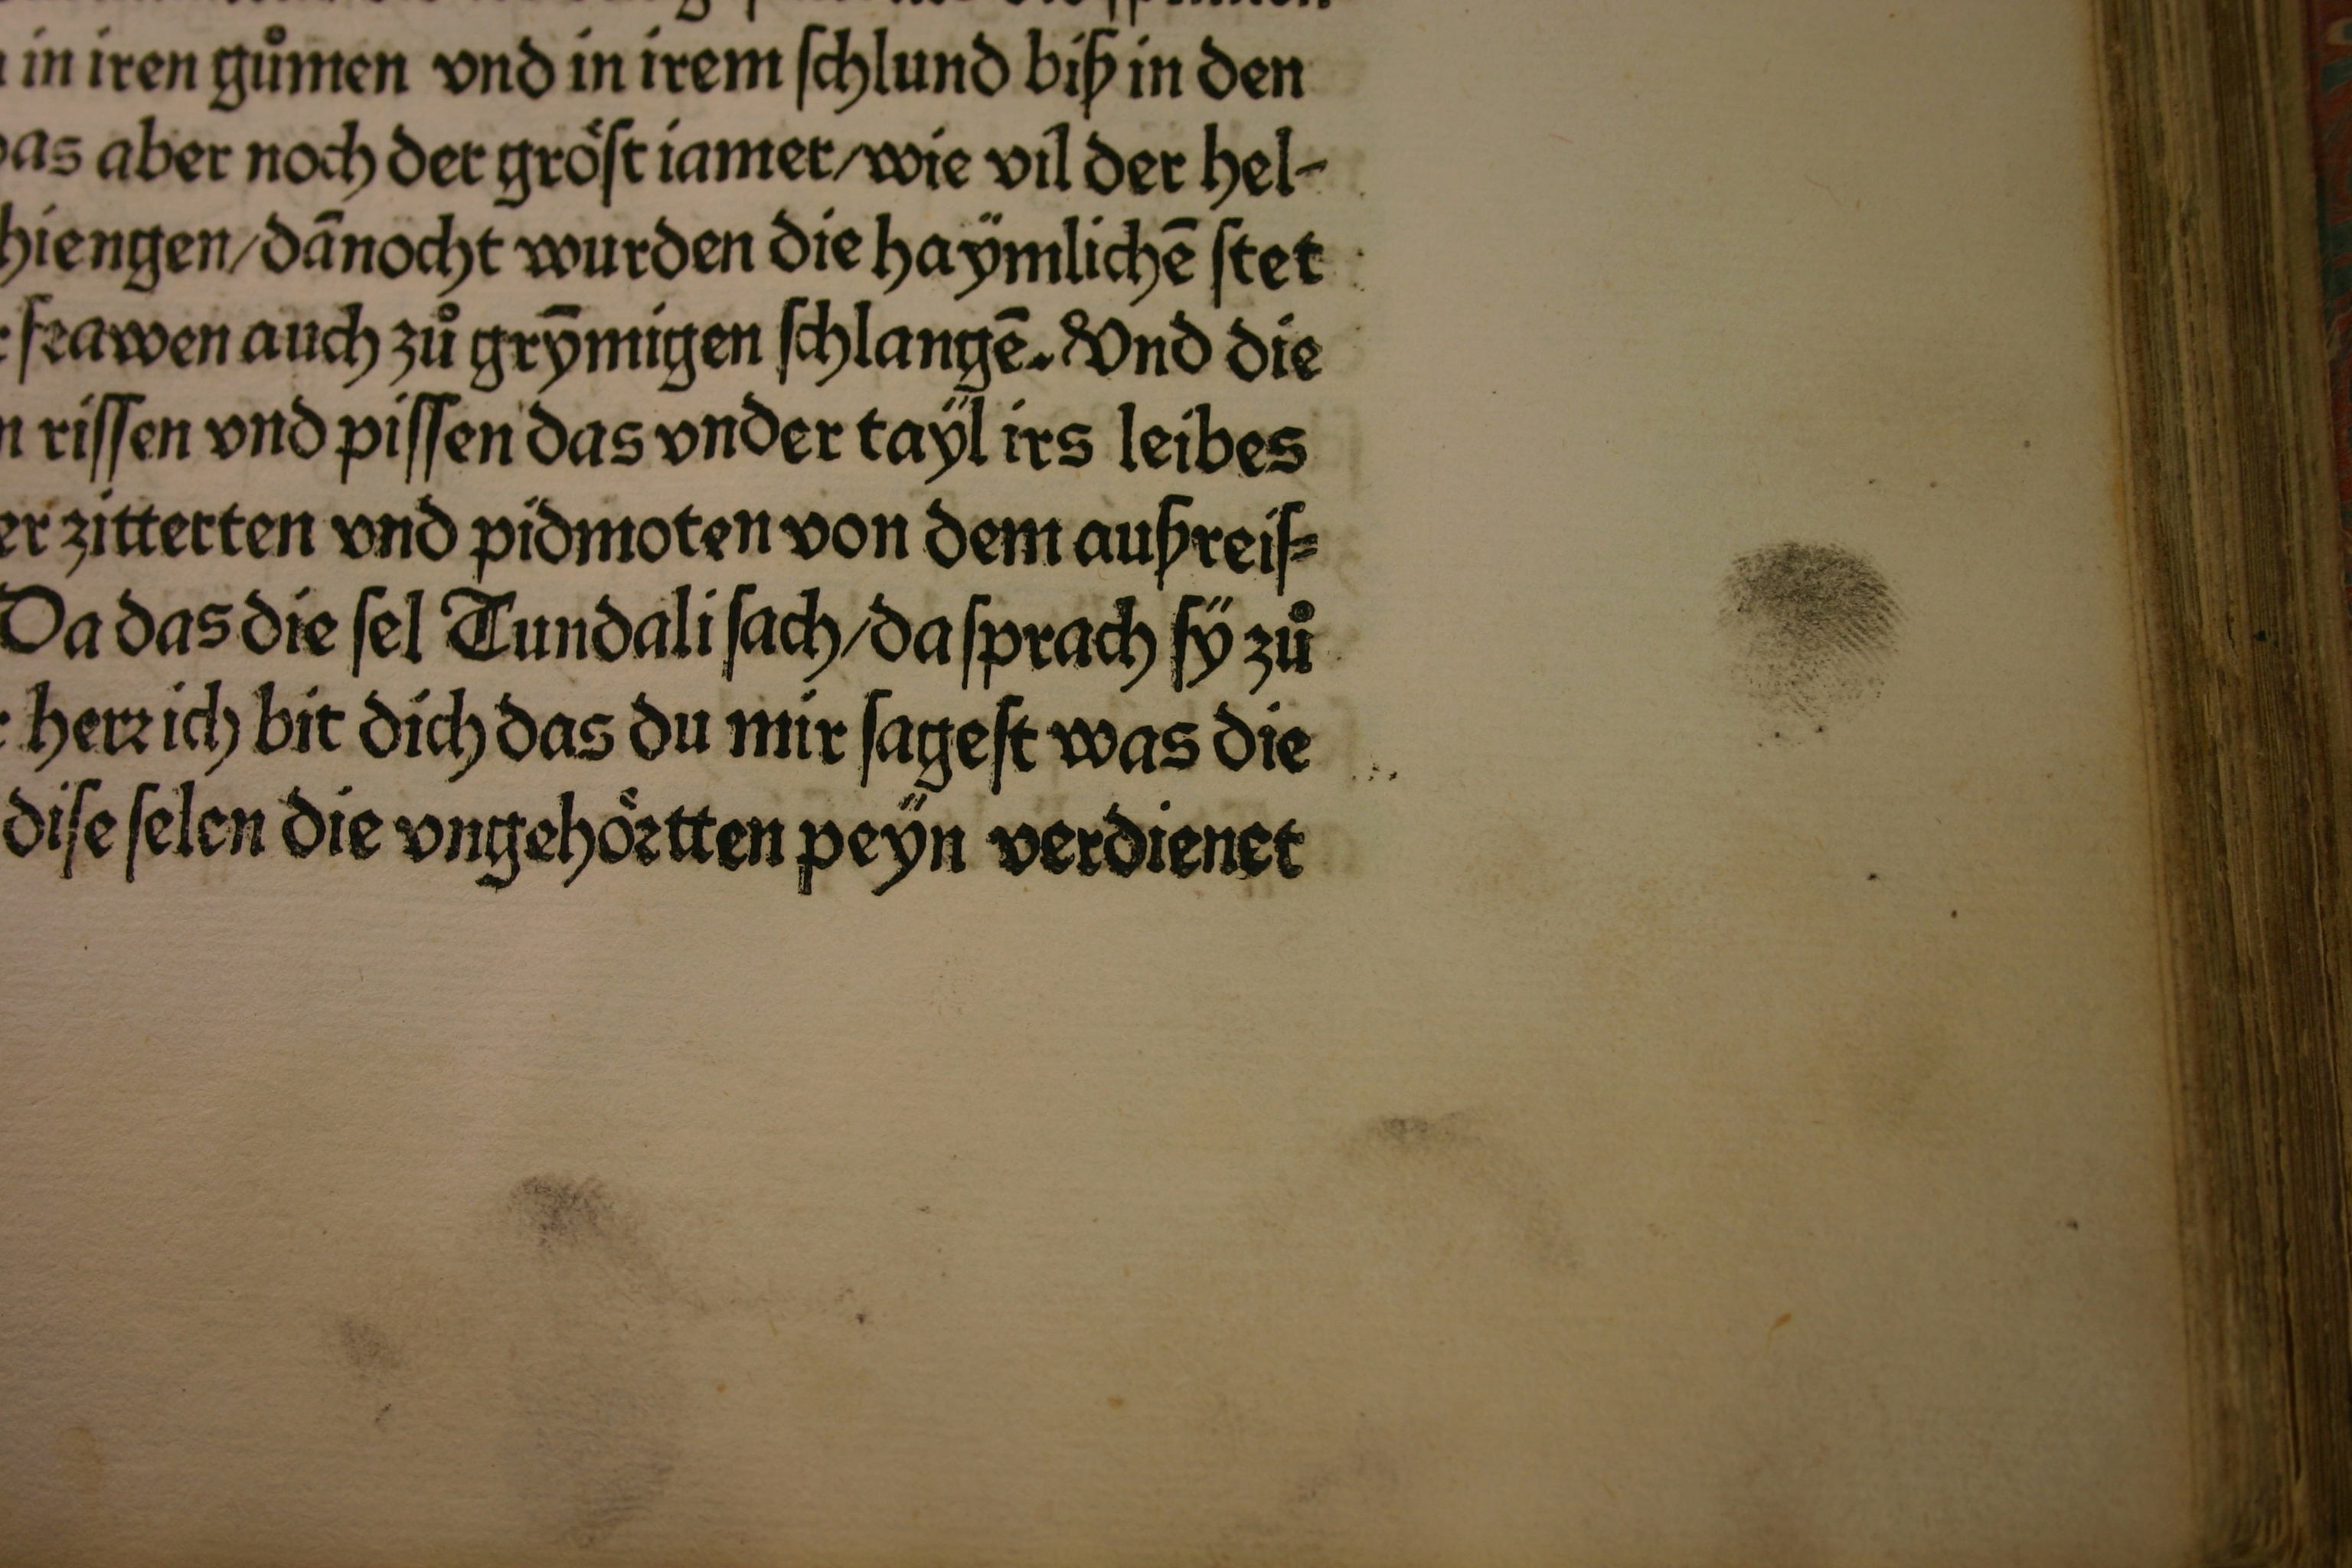 in iren gůmen vnd in irem ſchlund biß in den
as aber noch der grőſt iamer/wie vil der hel-
hiengen/dānocht wurden die haÿmlichē ſtet
frawen auch zů grȳmigen ſchlangē. Vnd die
n riſſen vnd piſſen das vnder taÿl irs leibes
er zitterten vnd pidmoten von dem außreiſ⸗
Da das die ſel Tundali ſach/da ſprach ſÿ zů
herꝛ ich bit dich das du mir ſageſt was die
diſe ſelen die vngehoͤꝛtten peÿn verdienet